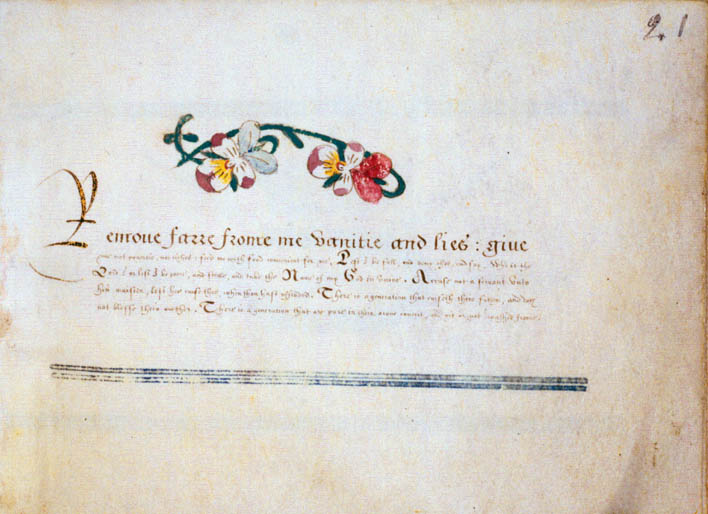 21
Remoue farre frome me vanitie and lies: giue
me not pouertie, nor riches: feed me with food conuenient for me, Lest I be full, and deny thee, and say, Who is the
Lord? or lest I be poore, and steale, and take the Name of my God in vaine. Accuse not a seruant vnto
his maister, lest he curse thee, when thou hast offended. There is a generation that curseth their father, and doth
not blesse their mother. There is a generation that are pure in their owne conceit, and yet are not washed frome